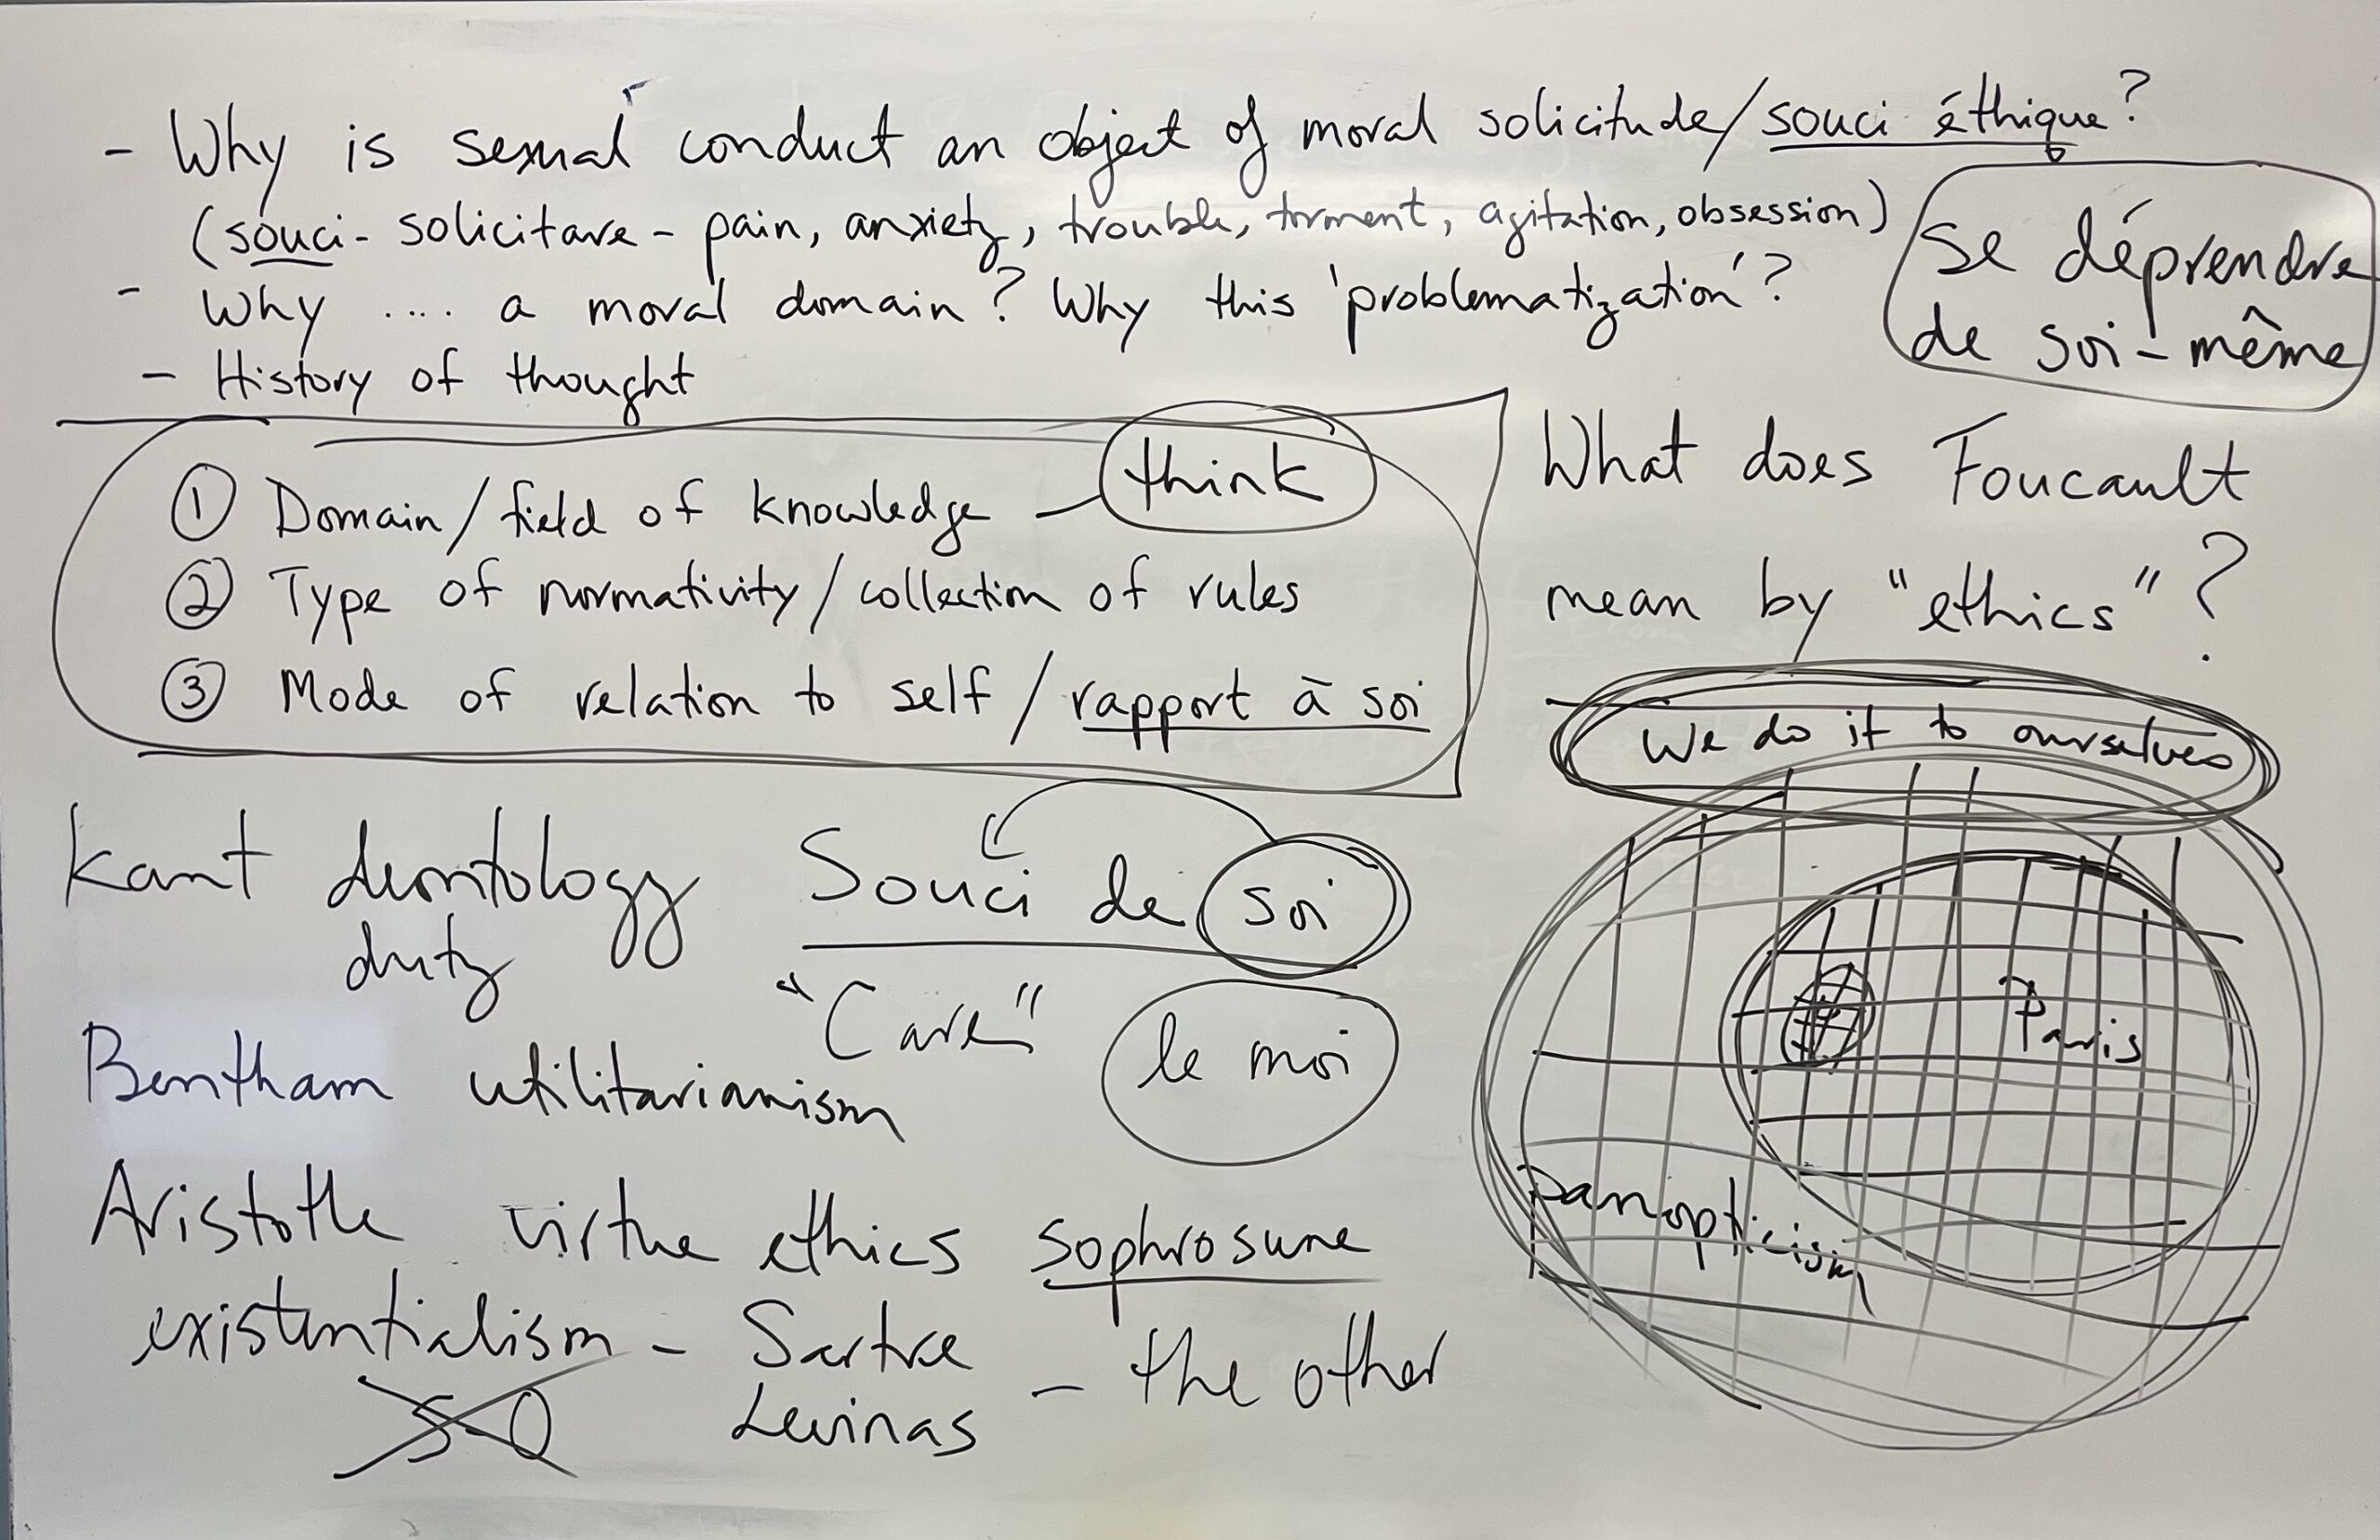 - Why is sexual conduct an object of moral solicitude/souci éthique?
(souci - solicitare - pain, anxiety, trouble, torment, agitation, obsession)
- Why .... a moral domain? Why this 'problematization'?
- History of thought
se déprendre
de soi-même
① Domain/field of knowledge - think
② Type of normativity/collection of rules
③ Mode of relation to self/rapport à soi
What does Foucault
mean by "ethics"?
We do it to ourselves
Kant deontology
duty
Souci de soi
"Care"
le moi
Bentham utilitarianism
Aristotle virtue ethics sophrosune
existentialism - Sartre
Levinas - the other
S-O
Paris
panopticism